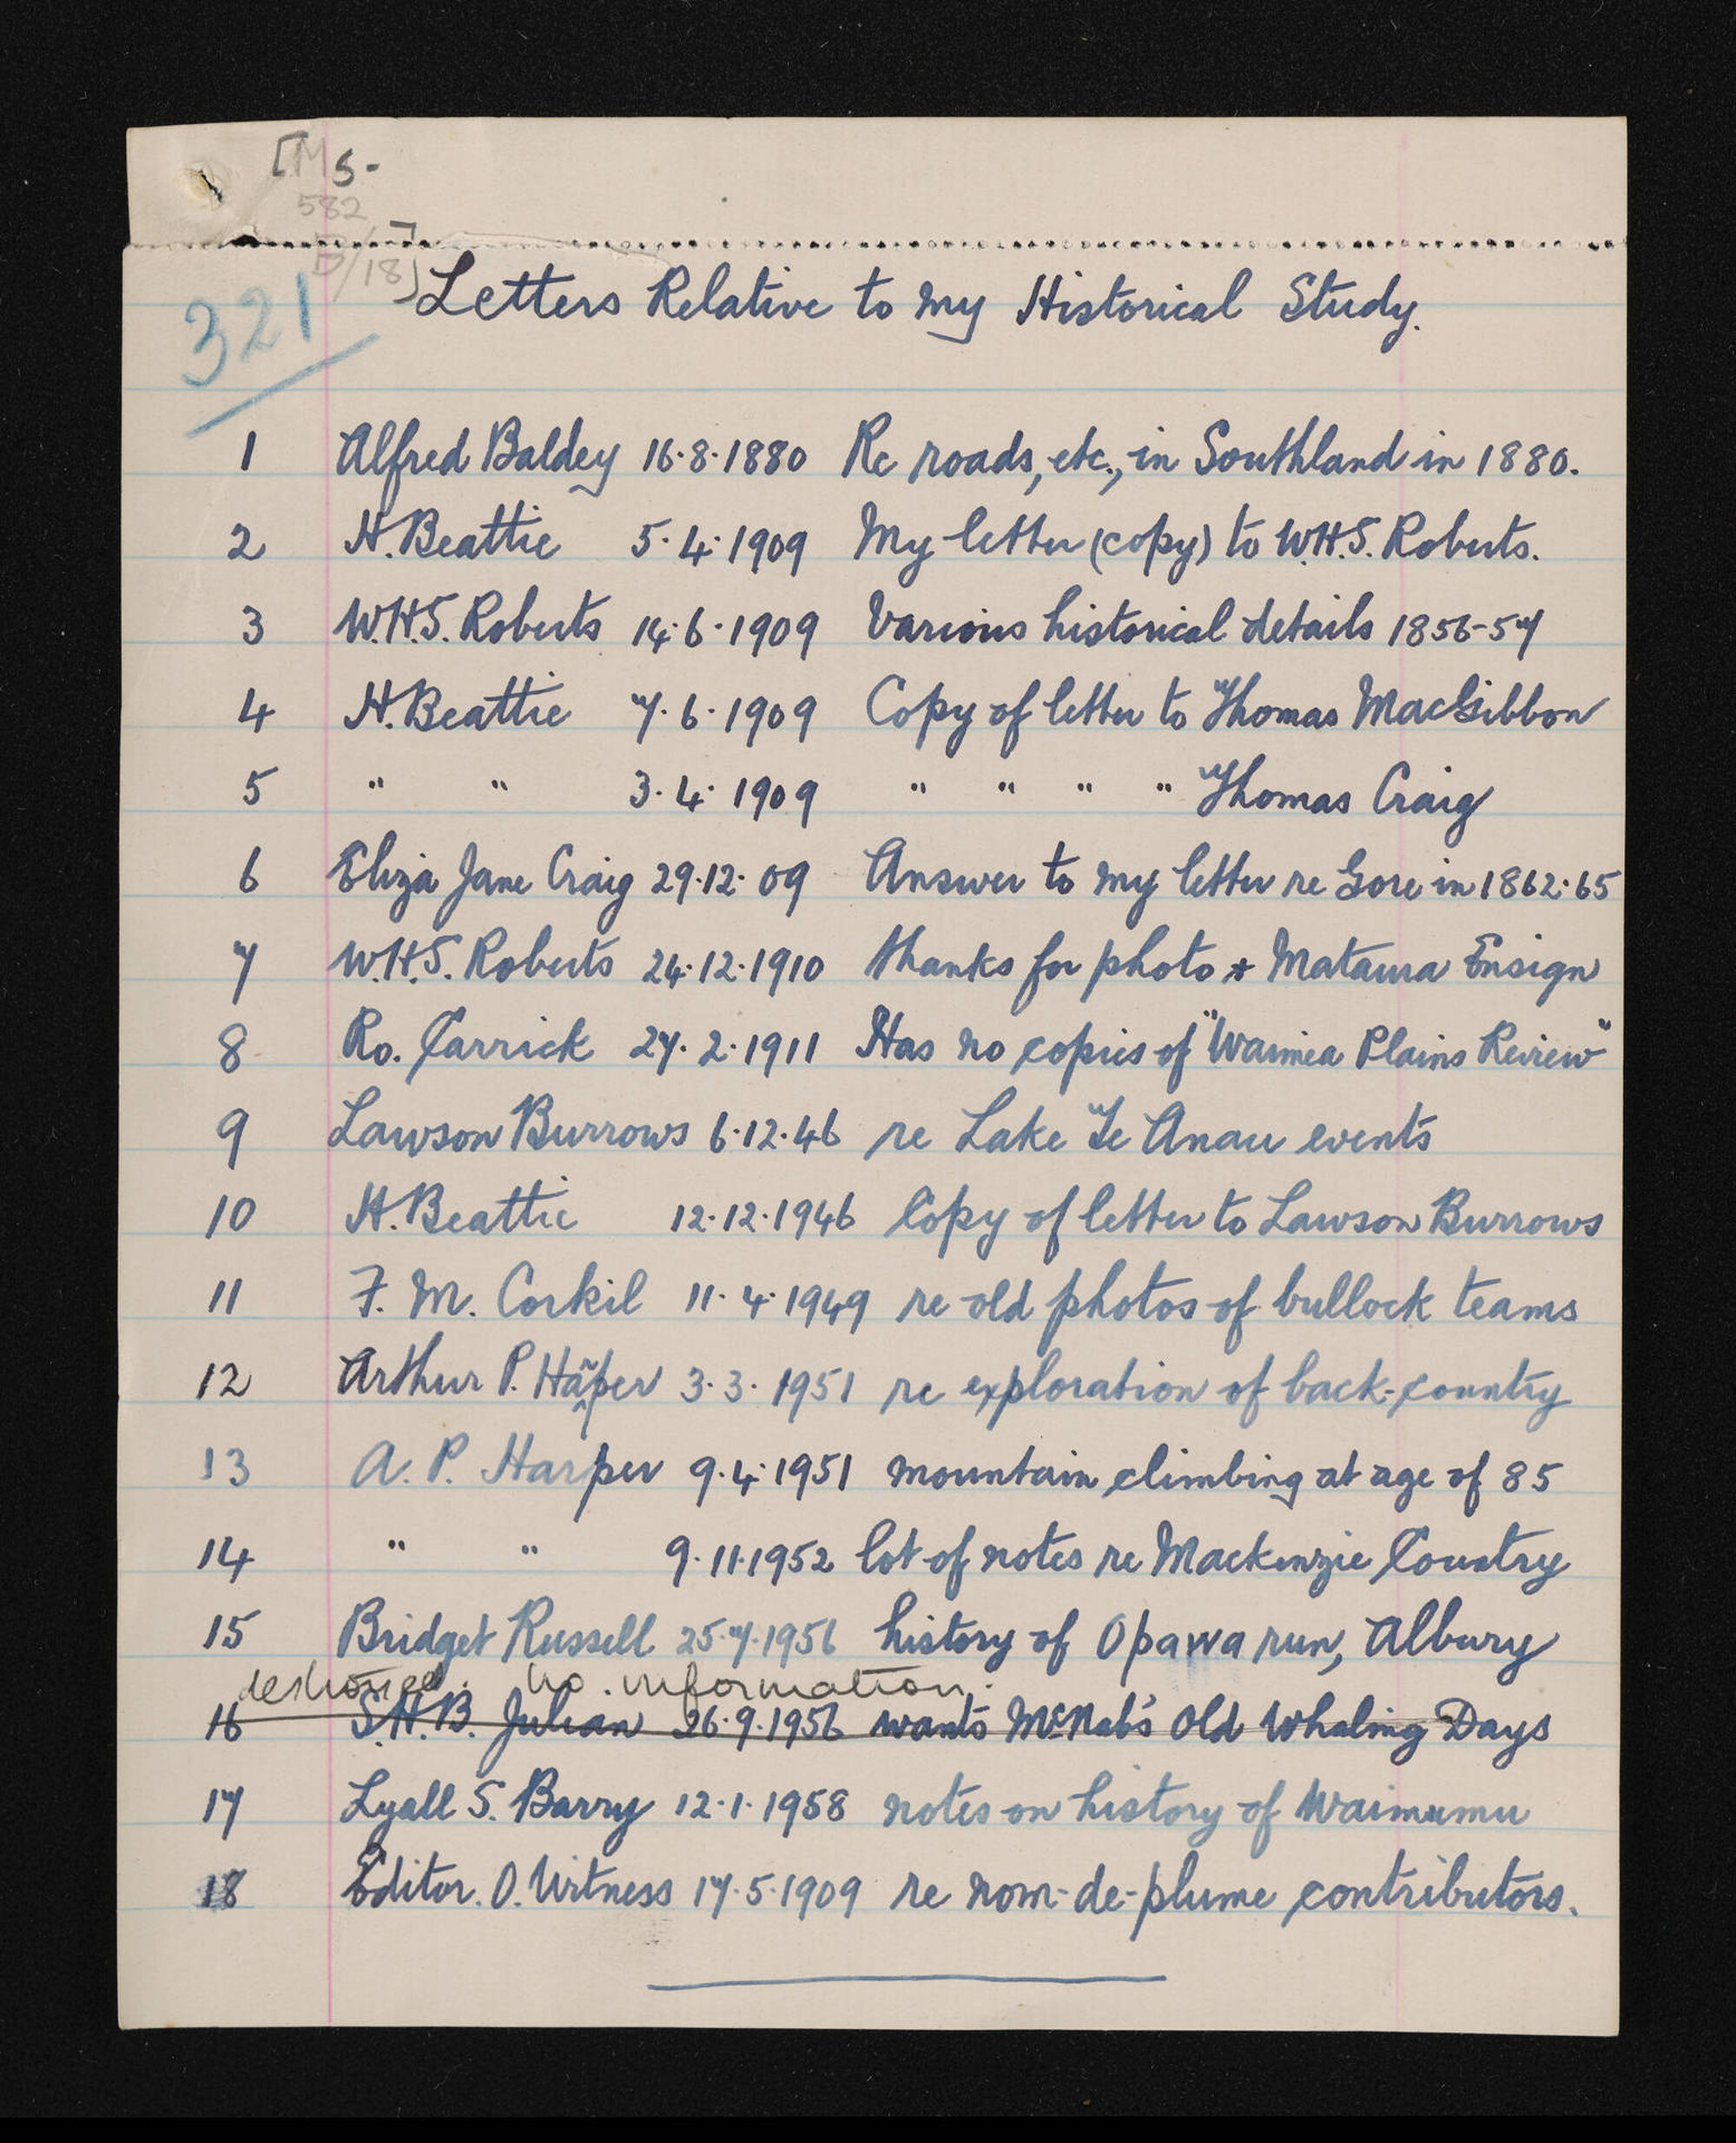 [MS-
582
D/18]
321
Letters Relative to my Historical Study.
1 Alfred Baldey 16·8·1880 Re roads, etc., in Southland in 1880.
2 H. Beattie 5·4·1909 My letter (copy) to W.H.S. Roberts.
3 W.H.S. Roberts 14·6·1909 Various historical details 1856-57
4 H. Beattie 7·6·1909 Copy of letter to Thomas MacGibbon
5 " " 3·4·1909 " " " " Thomas Craig
6 Eliza Jane Craig 29·12·09 Answer to my letter re Gore in 1862·65
7 W.H.S. Roberts 24·12·1910 thanks for photo & Mataura Ensign
8 Ro. Carrick 27·2·1911 Has no copies of "Waimea Plains Review"
9 Lawson Burrows 6·12·46 re Lake Te Anau events
10 H. Beattie 12·12·1946 Copy of letter to Lawson Burrows
11 F. M. Corkil 11·4·1949 re old photos of bullock teams
12 Arthur P. Harper 3·3·1951 re exploration of back-country
13 A. P. Harper 9·4·1951 mountain climbing at age of 85
14 " " 9·11·1952 lot of notes re Mackenzie Country
15 Bridget Russell 25·7·1956 history of Opawa run, Albury
destroyed. No information.
16 S.H.B. Julian 26·9·1956 wants McNab's Old Whaling Days
17 Lyall S. Barry 12·1·1958 notes on history of Waimumu
18 Editor. O. Witness 17·5·1909 re nom-de-plume contributors.